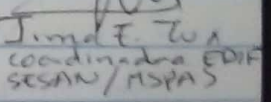 Jimd E. Tux
coordinadora EDIF
SESAN/MSPAS